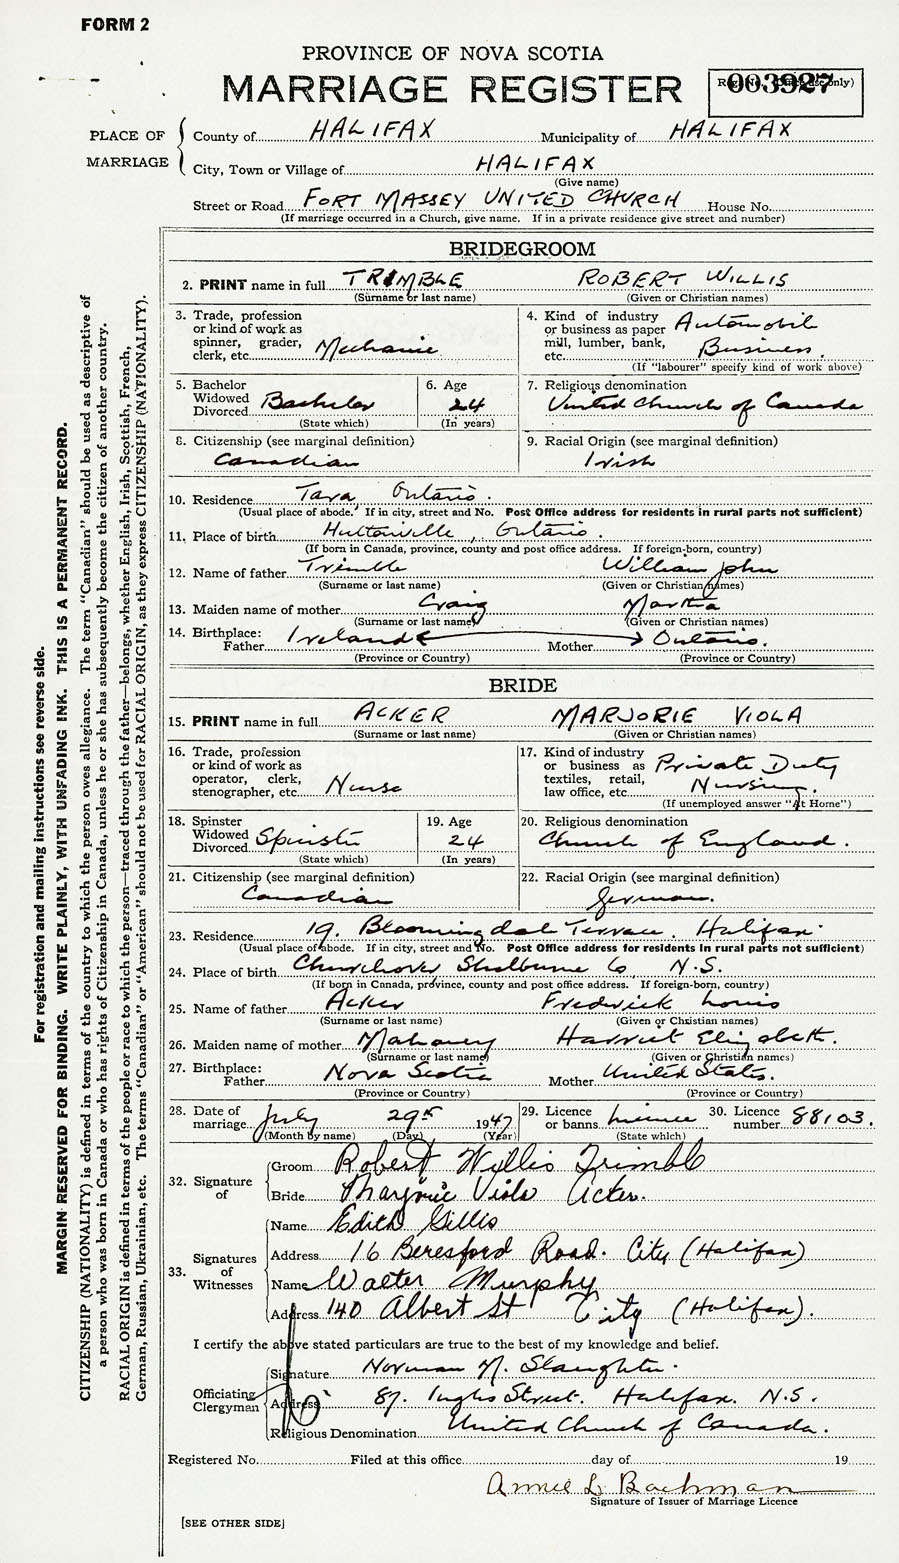 FORM 2
PROVINCE OF NOVA SCOTIA
MARRIAGE REGISTER
003927
PLACE OF MARRIAGE
County of HALIFAX Municipality of HALIFAX
City, Town or Village of HALIFAX
(Give name)
Street or Road FORT MASSEY UNITED CHURCH House No.
(If marriage occurred in a Church, give name. If in a private residence give street and number)
BRIDEGROOM
2. PRINT name in full TRIMBLE ROBERT WILLIS
(Surname or last name) (Given or Christian names)
3. Trade, profession
or kind of work as
spinner, grader,
clerk, etc. Mechanic
4. Kind of industry
or business as paper
mill, lumber, bank,
etc. Automobil
Business.
(If "labourer" specify kind of work above)
5. Bachelor
Widowed
Divorced Bachelor
(State which)
6. Age
24
(In years)
7. Religious denomination
United Church of Canada
8. Citizenship (see marginal definition)
Canadian
9. Racial Origin (see marginal definition)
Irish
10. Residence Tara Ontario.
(Usual place of abode. If in city, street and No. Post Office address for residents in rural parts not sufficient)
11. Place of birth Huttonville, Ontario.
(If born in Canada, province, county and post office address. If foreign-born, country)
12. Name of father Trimble William John
(Surname or last name) (Given or Christian names)
13. Maiden name of mother Craig Martha
(Surname or last name) (Given or Christian names)
14. Birthplace:
Father Ireland Mother Ontario.
(Province or Country) (Province or Country)
BRIDE
15. PRINT name in full ACKER MARJORIE VIOLA
(Surname or last name) (Given or Christian names)
16. Trade, profession
or kind of work as
operator, clerk,
stenographer, etc. Nurse
17. Kind of industry
or business as
textiles, retail,
law office, etc. Private Duty
Nursing.
(If unemployed answer "At Home")
18. Spinster
Widowed
Divorced Spinster
(State which)
19. Age
24
(In years)
20. Religious denomination
Church of England.
21. Citizenship (see marginal definition)
Canadian
22. Racial Origin (see marginal definition)
German.
23. Residence 19. Bloomingdale Terrace. Halifax.
(Usual place of abode. If in city, street and No. Post Office address for residents in rural parts not sufficient)
24. Place of birth Churchover Shelburne Co, N.S.
(If born in Canada, province, county and post office address. If foreign-born, country)
25. Name of father Acker Frederick Louis
(Surname or last name) (Given or Christian names)
26. Maiden name of mother Mahaney Harriet Elizabeth.
(Surname or last name) (Given or Christian names)
27. Birthplace:
Father Nova Scotia Mother United States.
(Province or Country) (Province or Country)
28. Date of
marriage July 29th 1947
(Month by name) (Day) (Year)
29. Licence
or banns licence
(State which)
30. Licence
number 88103.
32. Signature
of
Groom Robert Willis Trimble
Bride Marjorie Viola Acker.
33. Signatures
of
Witnesses
Name Edith Gillis
Address 16 Beresford Road. City (Halifax)
Name Walter Murphy
Address 140 Albert St City (Halifax).
I certify the above stated particulars are true to the best of my knowledge and belief.
Officiating
Clergyman
Signature Norman N. Slaughter.
Address 87. Inglis Street. Halifax. N.S.
Religious Denomination United Church of Canada.
Registered No. Filed at this office day of 19
Annie L Bachman
Signature of Issuer of Marriage Licence
[SEE OTHER SIDE]
For registration and mailing instructions see reverse side.
MARGIN RESERVED FOR BINDING. WRITE PLAINLY, WITH UNFADING INK. THIS IS A PERMANENT RECORD.
CITIZENSHIP (NATIONALITY) is defined in terms of the country to which the person owes allegiance. The term "Canadian" should be used as descriptive of
a person who was born in Canada or who has rights of Citizenship in Canada, unless he or she has subsequently become the citizen of another country.
RACIAL ORIGIN is defined in terms of the people or race to which the person—traced through the father—belongs, whether English, Irish, Scottish, French,
German, Russian, Ukrainian, etc. The terms "Canadian" or "American" should not be used for RACIAL ORIGIN, as they express CITIZENSHIP (NATIONALITY).